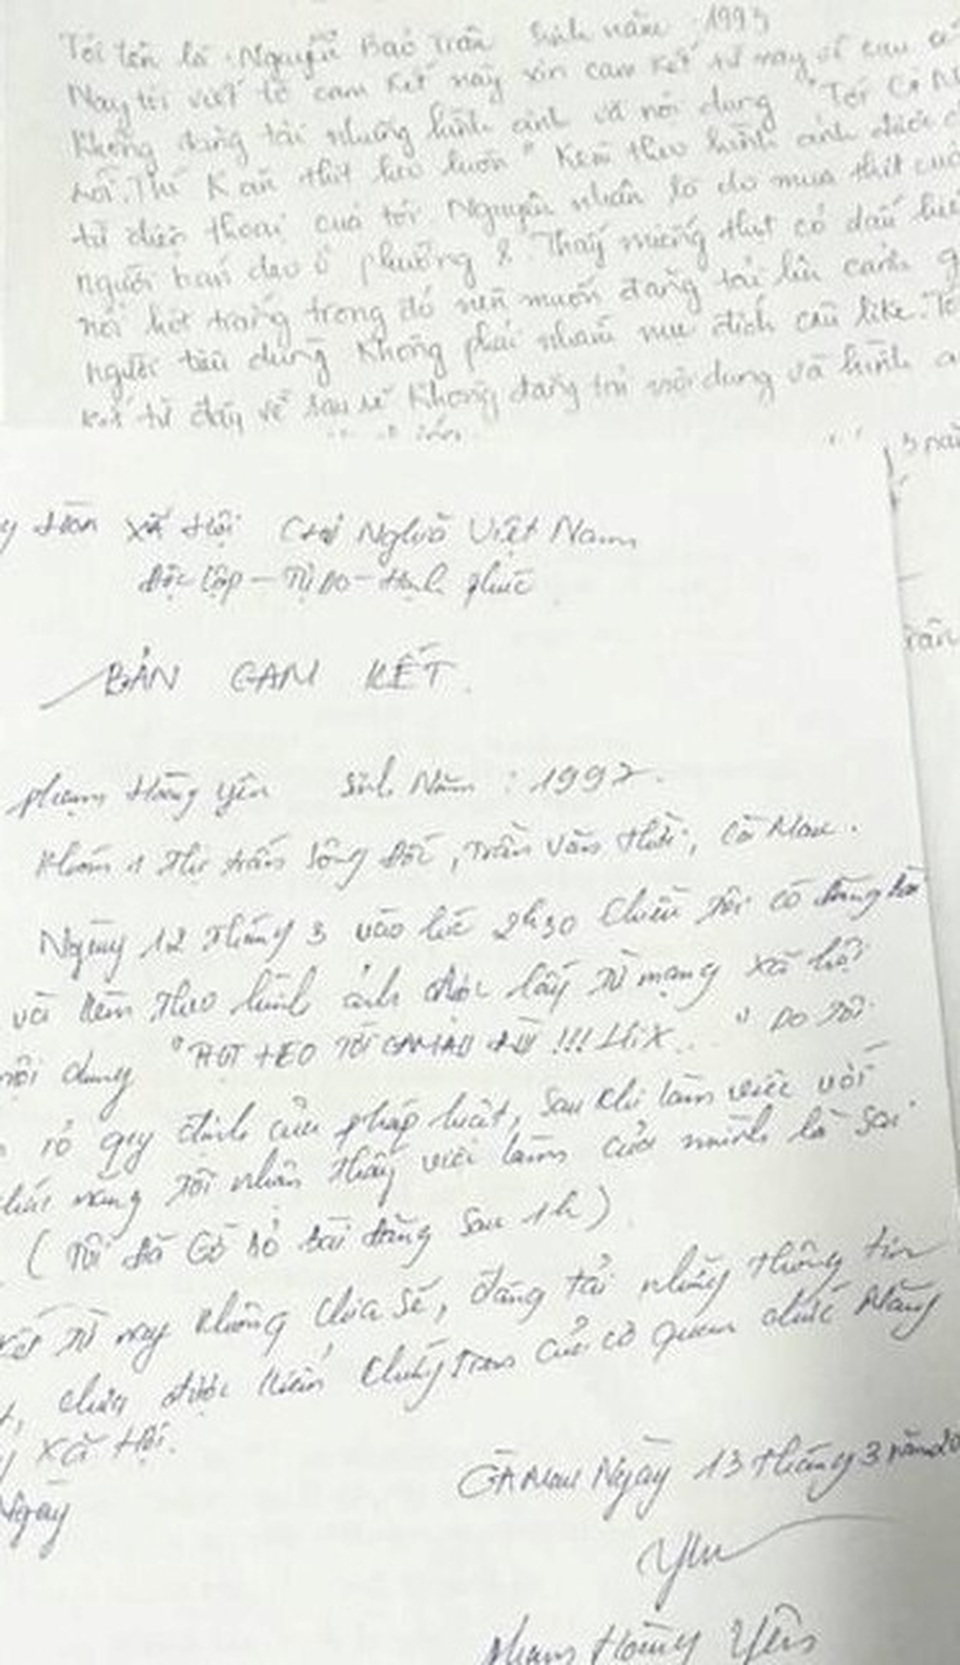 Tôi tên là Nguyễn Bảo Trân Sinh năm 1993
Nay tôi viết tờ cam kết này xin cam kết từ nay về sau
Không đăng tải những hình ảnh và nội dung "Tới Cà M
rồi. Thì K ăn thịt heo luôn" Kèm theo hình ảnh được
từ điện thoại của tôi Nguyên nhân là do mua thịt của
người bán dạo ở phường 8. Thấy miếng thịt có dấu hiệ
nổi hột trắng trong đó nên muốn đăng tải lên cảnh g
người tiêu dùng Không phải nhằm mục đích câu like. Tô
kết từ đây về sau sẽ Không đăng tải nội dung và hình ả
y Hòa Xã Hội Chủ Nghĩa Việt Nam
Độc lập - Tự Do - Hạnh phúc
BẢN CAM KẾT
Phạm Hoàng Yên Sinh Năm : 1997.
Khóm 1 Thị trấn Sông Đốc, Trần Văn Thời, Cà Mau.
Ngày 12 tháng 3 vào lúc 2h30 Chiều tôi có đăng tải
và kèm theo hình ảnh được lấy từ mạng xã hội
nội dung "HỐT HEO TỚI CAMAU RỒI !!! HIX..." Do tôi
rỏ quy định của pháp luật, sau khi làm việc với
chức năng tôi nhận thấy việc làm của mình là sai
( Tôi đã Gỡ bỏ bài đăng sau 1h )
kết từ nay không chia sẽ, đăng tải những thông tin
chưa được kiểm chứng trên của cơ quan chức Năng
Xã Hội.
Ngày
CÀ Mau Ngày 13 tháng 3 năm 20
Yên
Phạm Hoàng Yên
3 nă
rân